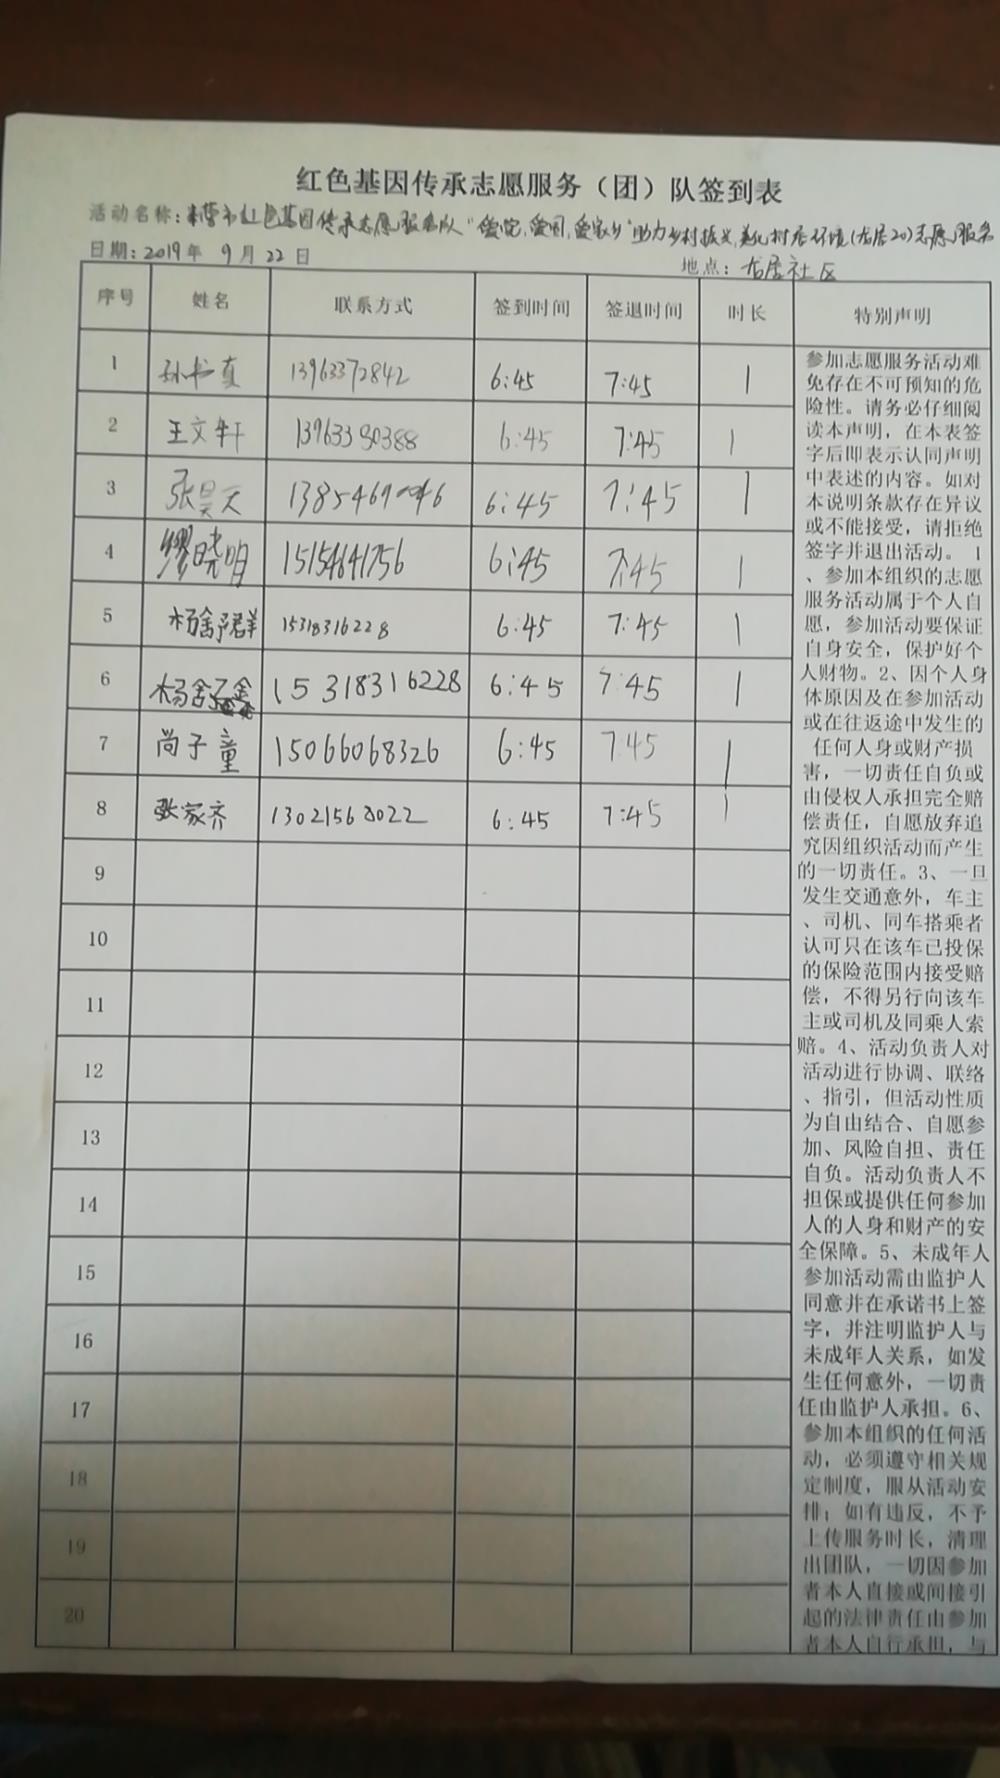 红色基因传承志愿服务（团）队签到表
活动名称：东营市红色基因传承志愿服务队“爱党,爱国,爱家乡”助力乡村振兴,美化村居环境(龙居20)志愿服务
日期：2019年 9月 22日
地点：龙居社区
序号 姓名 联系方式 签到时间 签退时间 时长 特别声明
1 孙书真 13963372842 6:45 7:45 1
2 王文轩 13963380388 6:45 7:45 1
3 张昊天 6:45 7:45 1
4 缪晓明 15154641756 6:45 7:45 1
5 杨舍予群 15318316228 6:45 7:45 1
6 杨舍 15318316228 6:45 7:45 1
7 尚子童 15066068326 6:45 7:45 1
8 张家齐 13021568022 6:45 7:45 1
9
10
11
12
13
14
15
16
17
18
19
20
参加志愿服务活动难
免存在不可预知的危
险性。请务必仔细阅
读本声明，在本表签
字后即表示认同声明
中表述的内容。如对
本说明条款存在异议
或不能接受，请拒绝
签字并退出活动。 1
、参加本组织的志愿
服务活动属于个人自
愿，参加活动要保证
自身安全，保护好个
人财物。2、因个人身
体原因及在参加活动
或在往返途中发生的
任何人身或财产损
害，一切责任自负或
由侵权人承担完全赔
偿责任，自愿放弃追
究因组织活动而产生
的一切责任。3、一旦
发生交通意外，车主
、司机、同车搭乘者
认可只在该车已投保
的保险范围内接受赔
偿，不得另行向该车
主或司机及同乘人索
赔。4、活动负责人对
活动进行协调、联络
、指引，但活动性质
为自由结合、自愿参
加、风险自担、责任
自负。活动负责人不
担保或提供任何参加
人的人身和财产的安
全保障。5、未成年人
参加活动需由监护人
同意并在承诺书上签
字，并注明监护人与
未成年人关系，如发
生任何意外，一切责
任由监护人承担。6、
参加本组织的任何活
动，必须遵守相关规
定制度，服从活动安
排；如有违反，不予
上传服务时长，清理
出团队，一切因参加
者本人直接或间接引
起的法律责任由参加
者本人自行承担，与